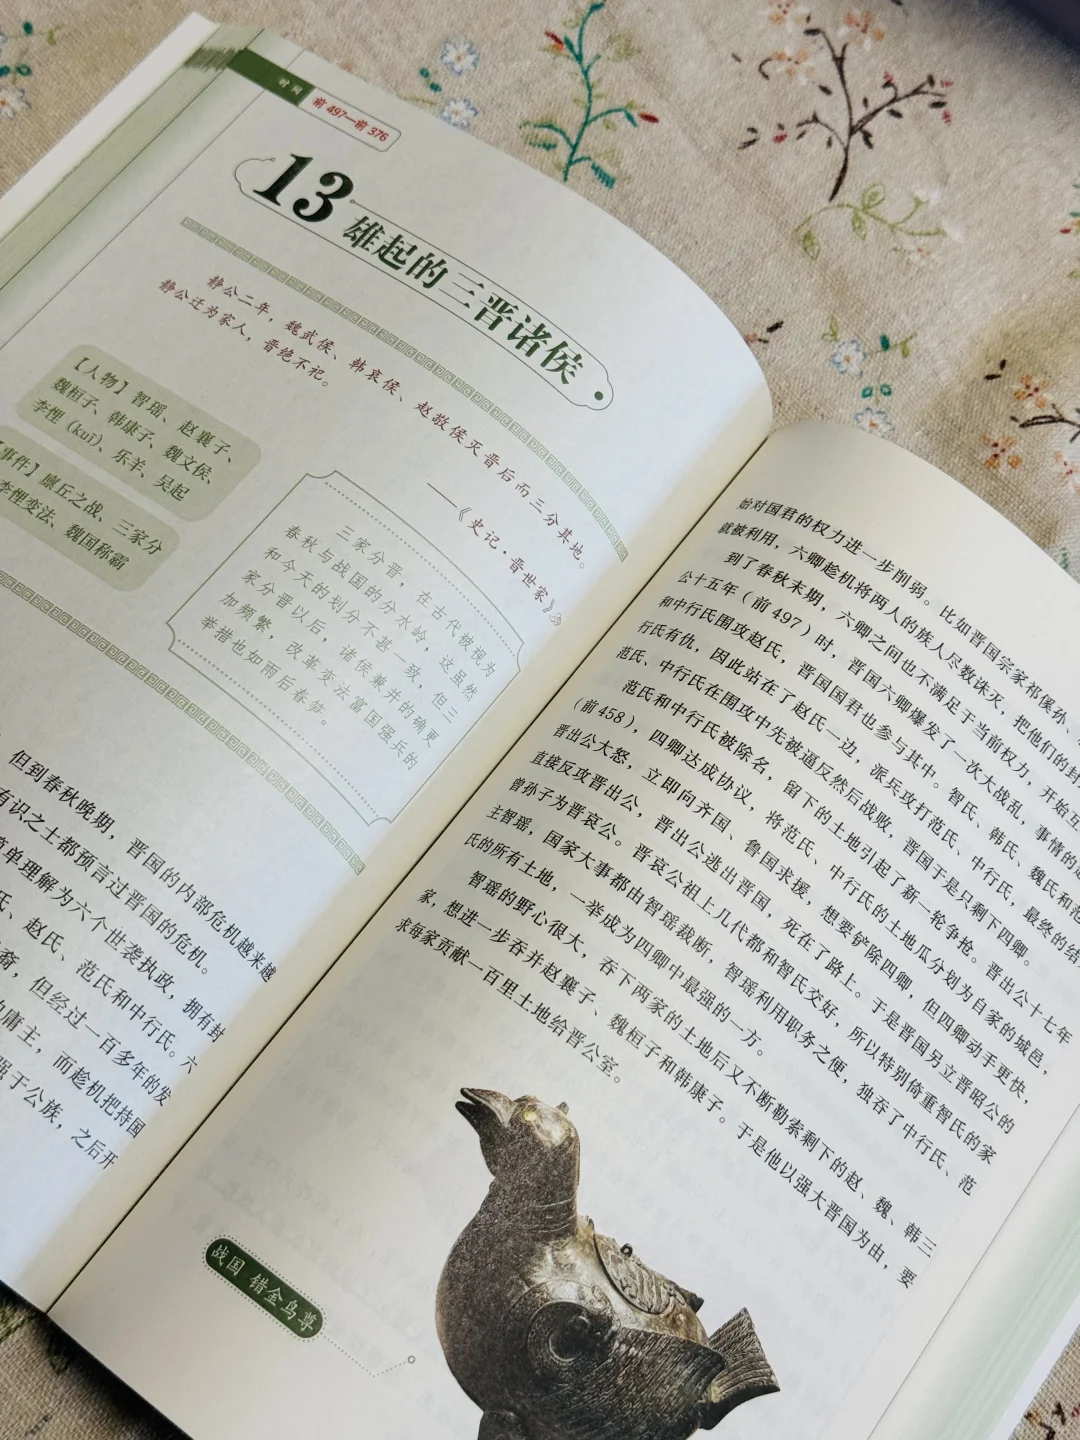 时间
前 497—前 376
13
雄起的三晋诸侯
静公二年，魏武侯、韩哀侯、赵敬侯灭晋后而三分其地。
静公迁为家人，晋绝不祀。
——《史记·晋世家》
【人物】智瑶、赵襄子、
魏桓子、韩康子、魏文侯、
李悝（kuī）、乐羊、吴起
事件】廪丘之战、三家分
李悝变法、魏国称霸
三家分晋，在古代被视为
春秋与战国的分水岭，这虽然
和今天的划分不甚一致，但三
家分晋以后，诸侯兼并的确更
加频繁，改革变法富国强兵的
举措也如雨后春笋。
但到春秋晚期，晋国的内部危机越来越
有识之士都预言过晋国的危机。
单理解为六个世袭执政，拥有封
氏、赵氏、范氏和中行氏。六
裔，但经过一百多年的发
庸主，而趁机把持国
强于公族，之后开
始对国君的权力进一步削弱。比如晋国宗家祁傒孙、
就被利用，六卿趁机将两人的族人尽数诛灭，把他们的封
到了春秋末期，六卿之间也不满足于当前权力，开始互
公十五年（前 497）时，晋国六卿爆发了一次大战乱，事情的起
和中行氏围攻赵氏，晋国国君也参与其中。智氏、韩氏、魏氏和范
行氏有仇，因此站在了赵氏一边，派兵攻打范氏、中行氏，最终的结
范氏、中行氏在围攻中先被逼反然后战败，晋国于是只剩下四卿。
范氏和中行氏被除名，留下的土地引起了新一轮争抢。晋出公十七年
（前 458），四卿达成协议，将范氏、中行氏的土地瓜分划为自家的城邑，
晋出公大怒，立即向齐国、鲁国求援，想要铲除四卿，但四卿动手更快，
直接反攻晋出公，晋出公逃出晋国，死在了路上。于是晋国另立晋昭公的
曾孙子为晋哀公。晋哀公祖上几代都和智氏交好，所以特别倚重智氏的家
主智瑶，国家大事都由智瑶裁断，智瑶利用职务之便，独吞了中行氏、范
氏的所有土地，一举成为四卿中最强的一方。
智瑶的野心很大，吞下两家的土地后又不断勒索剩下的赵、魏、韩三
家，想进一步吞并赵襄子、魏桓子和韩康子。于是他以强大晋国为由，要
求每家贡献一百里土地给晋公室。
战国 错金鸟尊